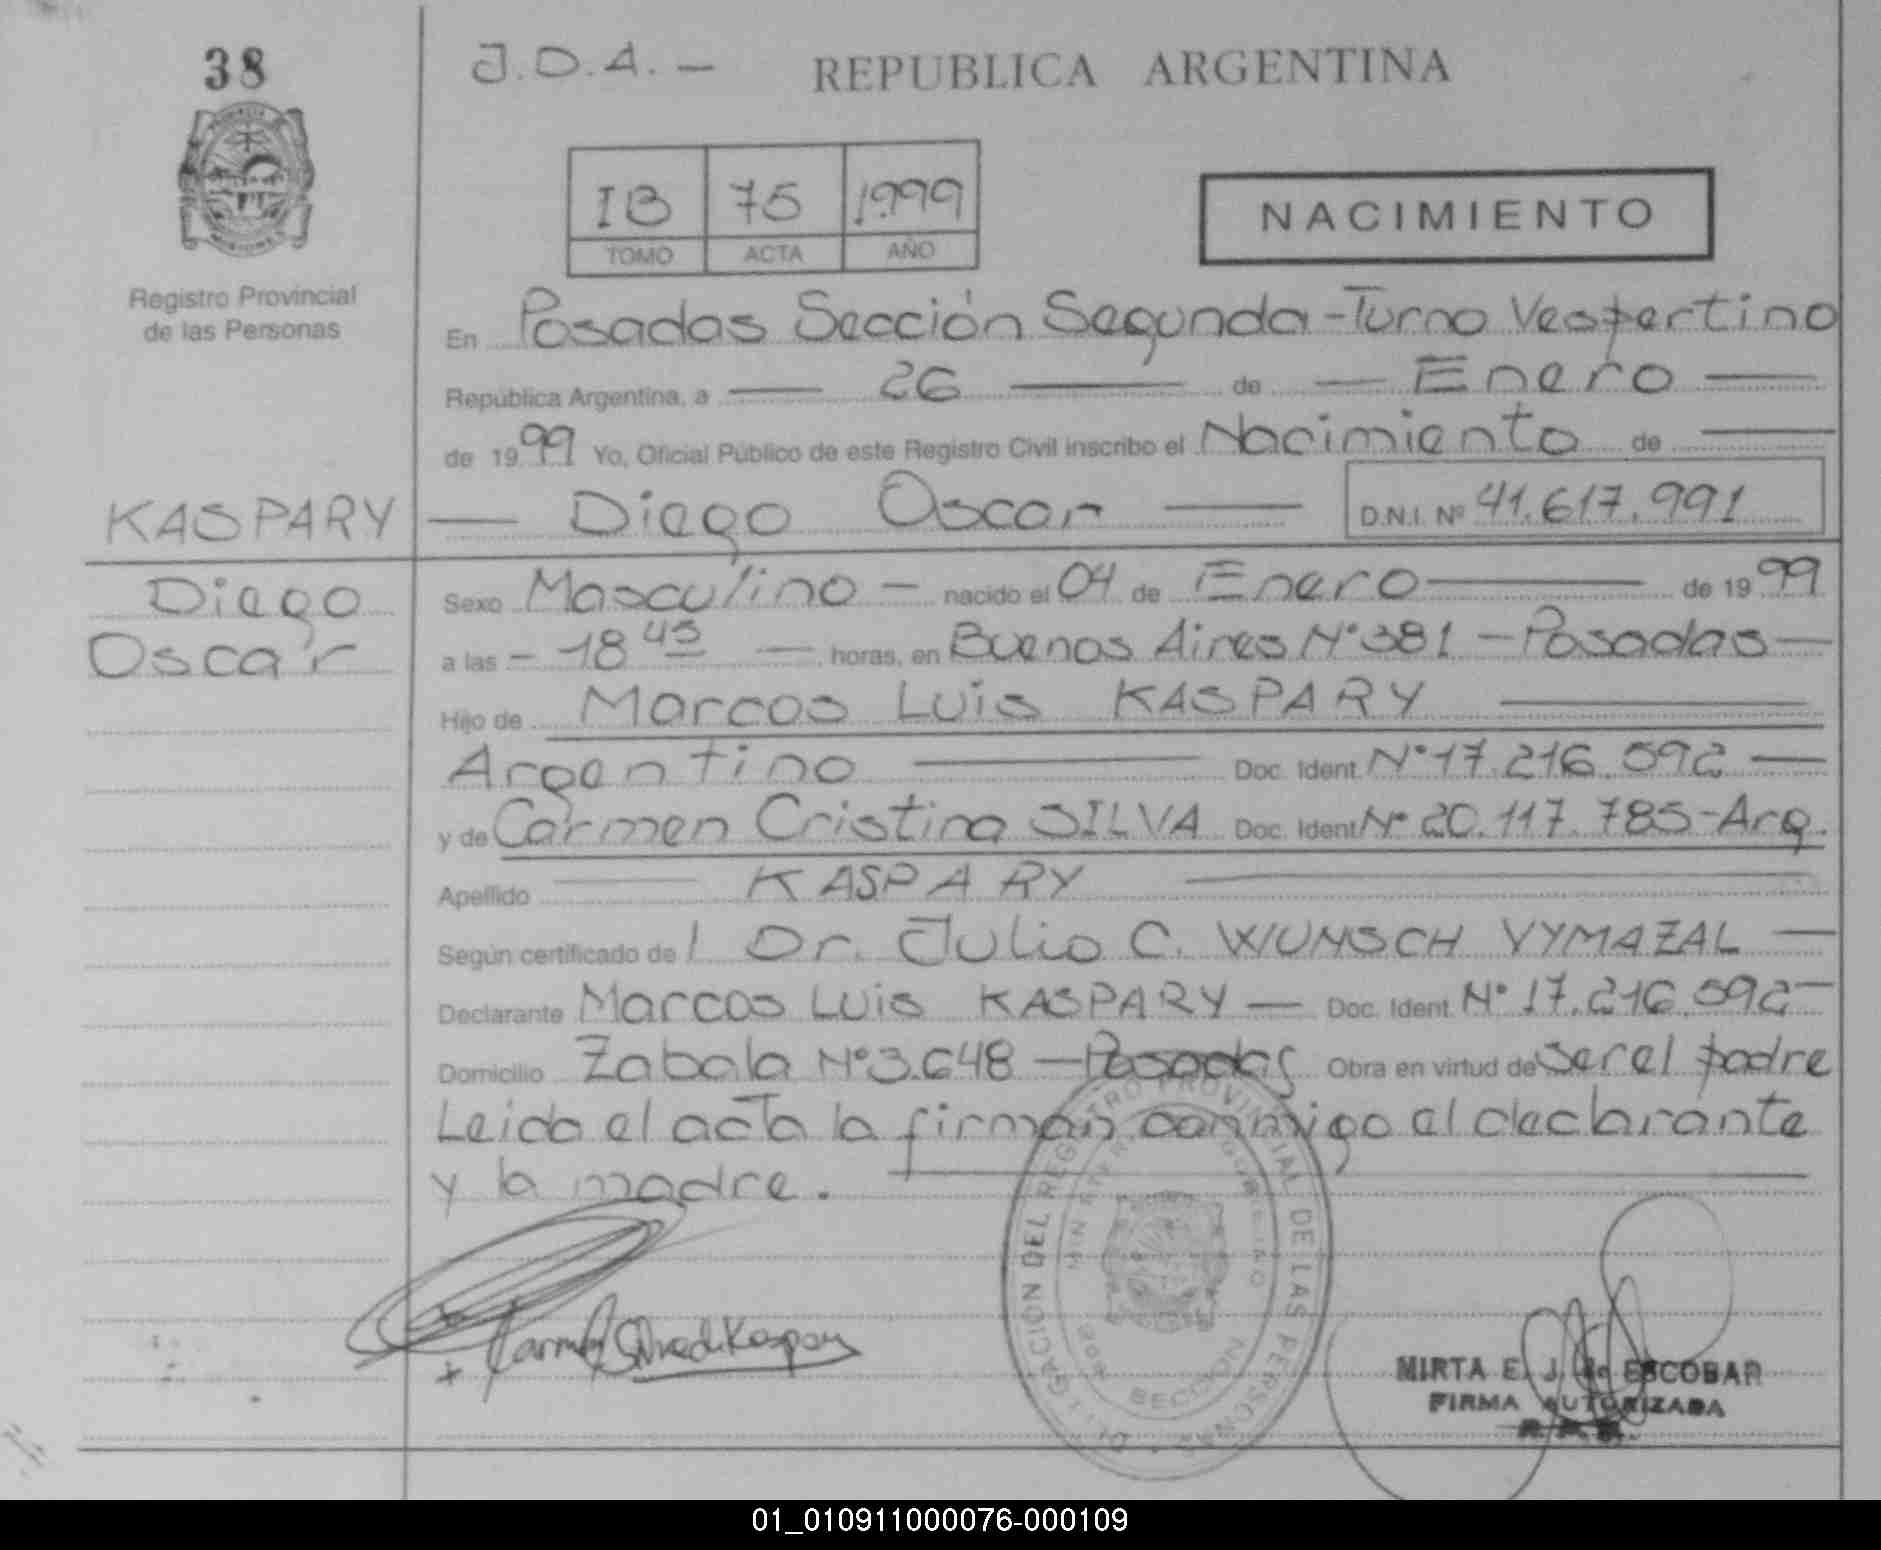 38
J.D.A. -
REPUBLICA ARGENTINA
IB 75 1999
TOMO ACTA AÑO
NACIMIENTO
Registro Provincial
de las Personas
En Posadas Sección Segunda - Turno Vespertino
República Argentina, a — 26 — de — Enero —
de 1999 Yo, Oficial Público de este Registro Civil inscribo el Nacimiento de —
KASPARY — Diego Oscar — D.N.I. Nº 41.617.991
Diego
Oscar
Sexo Masculino - nacido el 04 de Enero — de 1999
a las - 18 45 — horas, en Buenos Aires Nº 381 - Posadas -
Hijo de Marcos Luis KASPARY —
Argentino — Doc. Ident. Nº 17.216.592 —
y de Carmen Cristina SILVA Doc. Ident. Nº 20.117.785 - Arg.
Apellido — KASPARY —
Según certificado de l Dr. Julio C. WUNSCH VYMAZAL —
Declarante Marcos Luis KASPARY — Doc. Ident. Nº 17.216.592 -
Domicilio Zabala Nº 3.648 - Posadas Obra en virtud de ser el padre
Leida el acta la firman conmigo el declarante
y la madre. —
DELEGACION DEL REGISTRO PROVINCIAL DE LAS PERSONAS
SECCION
MIRTA E. J. de ESCOBAR
FIRMA AUTORIZADA
01_010911000076-000109